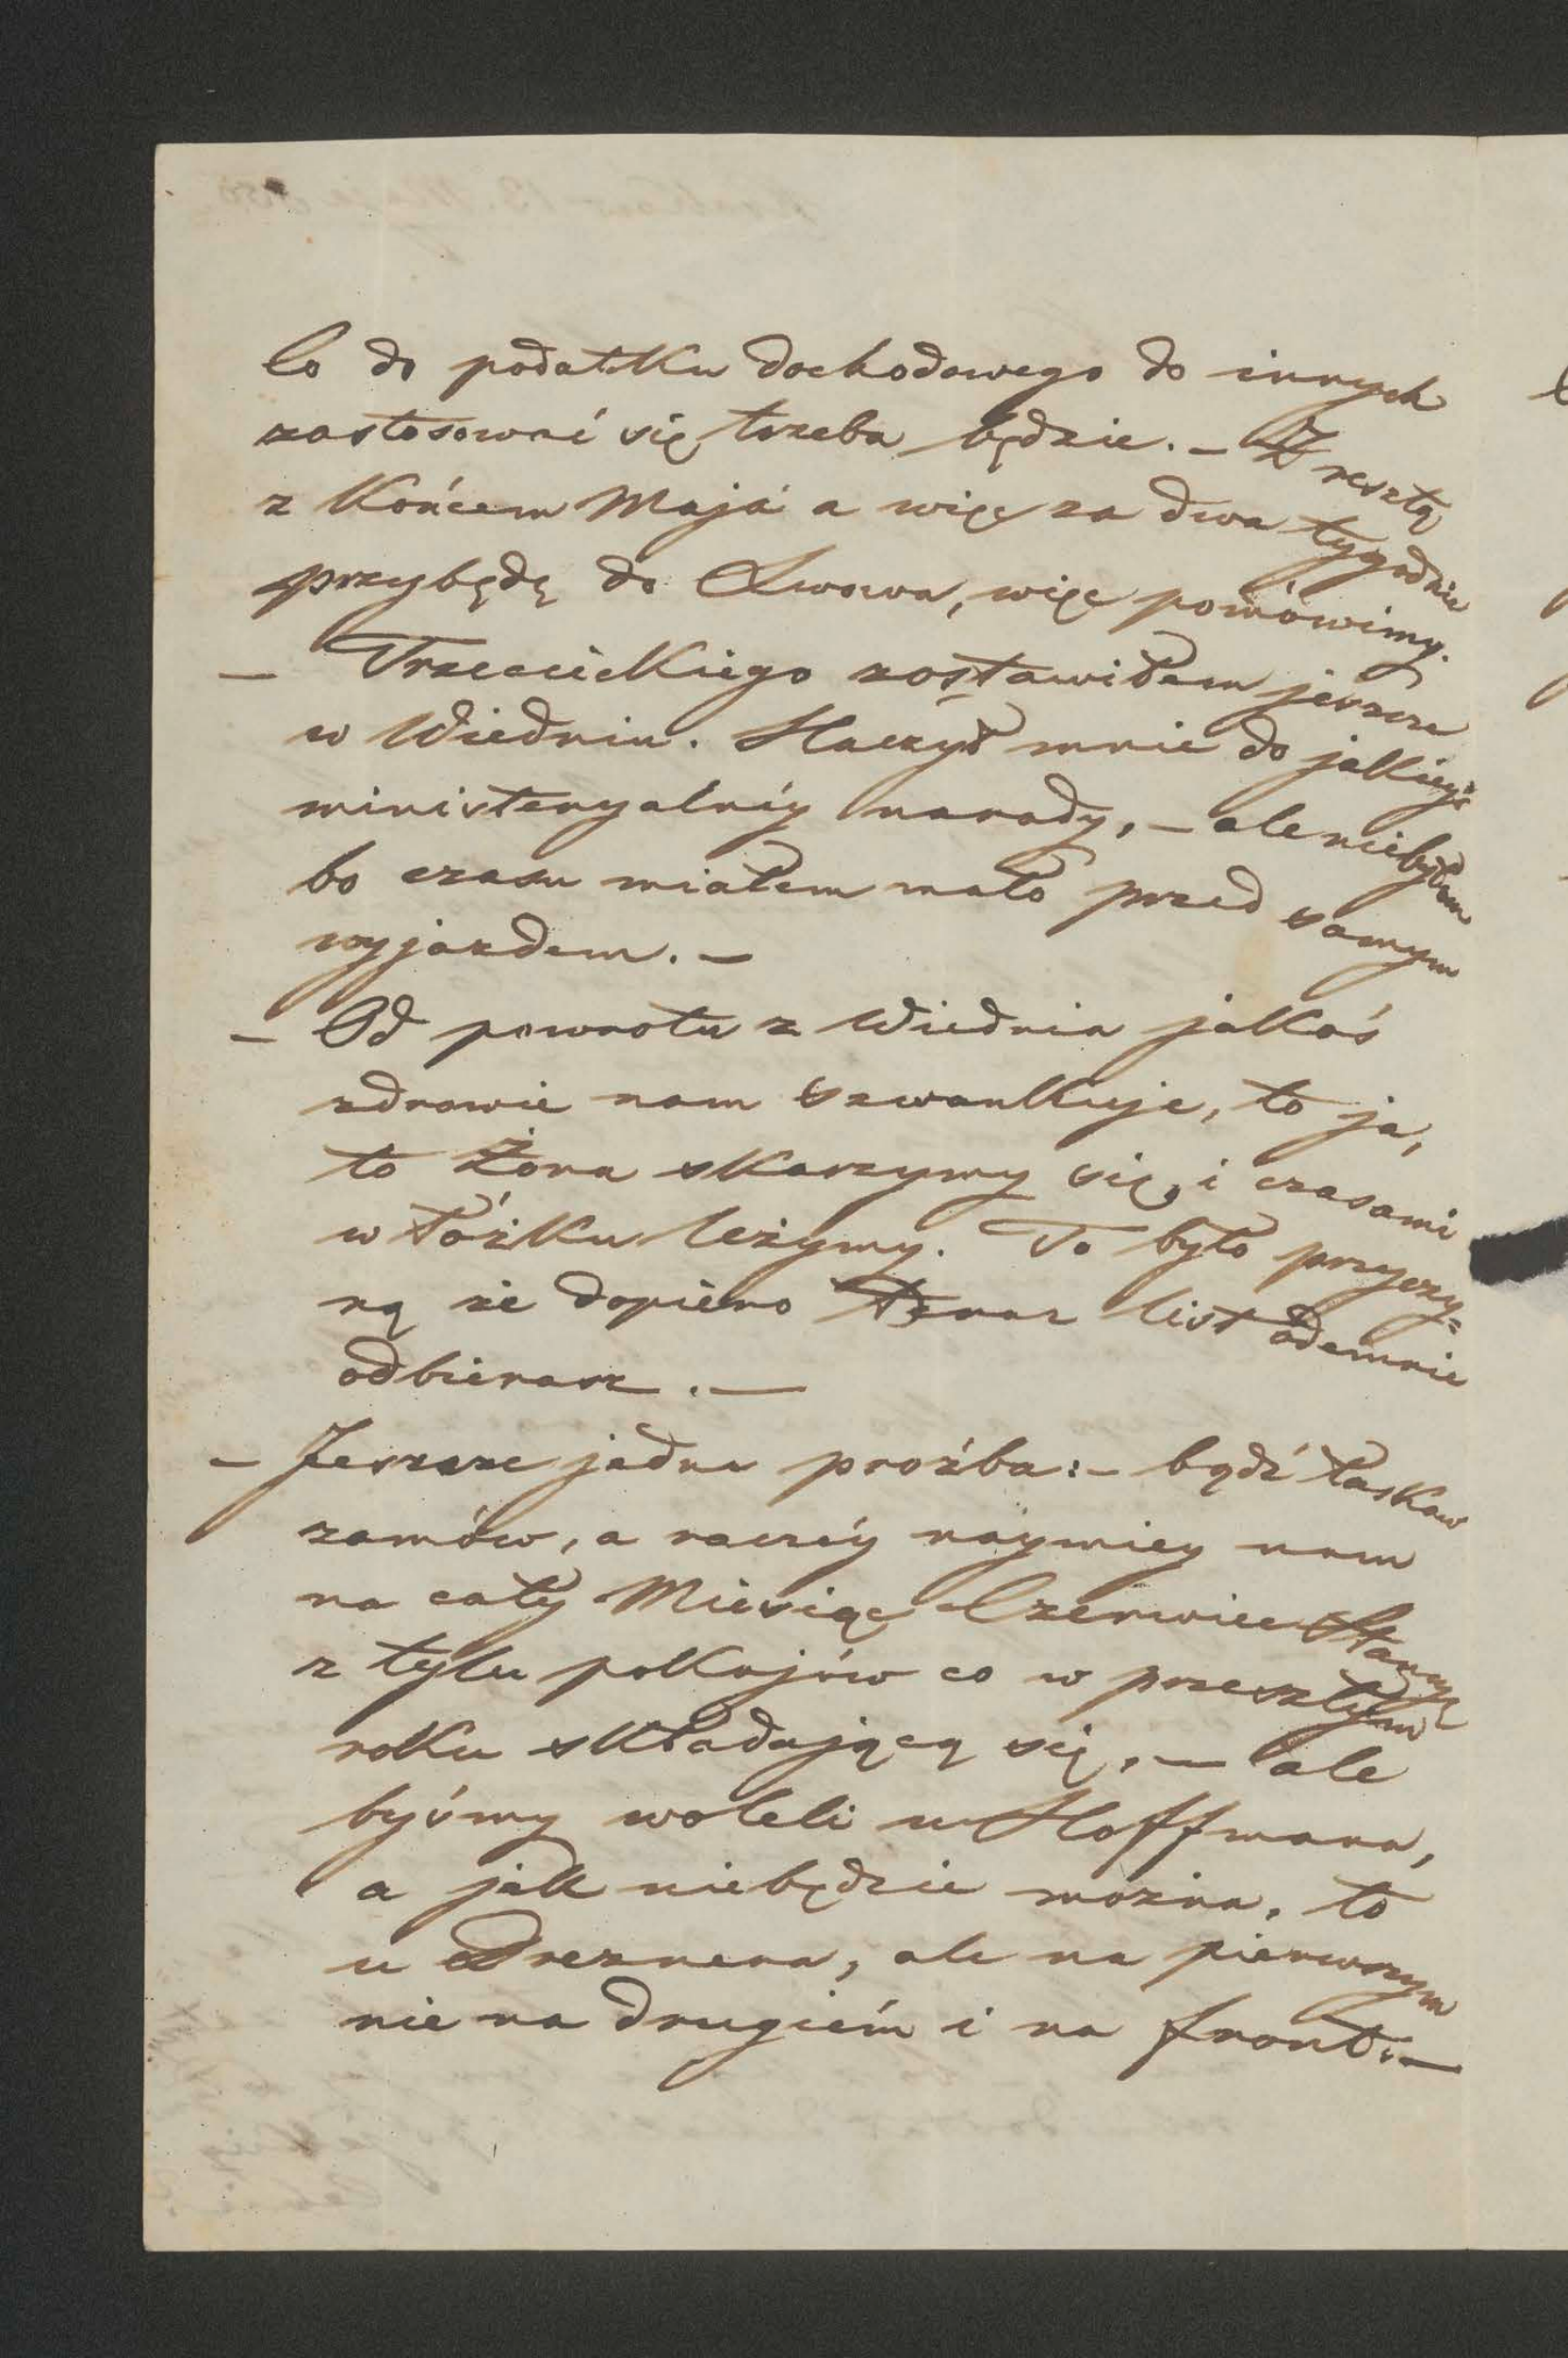 Co do podatku dochodowego do innych
zastosować się trzeba będzie. – Z resztą
z Końcem Maja a więc za dwa tygodnie
przybędę do Lwowa, więc pomówimy.
– Trzecieckiego zostawiłem jeszcze
w Wiedniu. Raczył mnie do jakiejś
ministeryalnéy narady, – ale niebyłem
bo czasu miałem mało przed samym
wyjazdem. –
– Od powrotu z Wiednia jakoś
zdrowie nam szwankuje, to ja,
to Żona skarzymy się, i czasami
w łóżku leżymy. To było przyczy=
ną że dopiero teraz list odemnie
odbierasz. —
– Jeszcze jedna proźba: – bądź łaskaw
zamów, a raczéy naymiey nam
na cały Miesiąc Czerwiec Stancyę
z tylu pokojów co w przeszłym
roku składającą się, — ale
byśmy woleli u Hoffmana,
a jak niebędzie można, to
u Dreznera, ale na pierwszym
nie na drugiém i na front. —